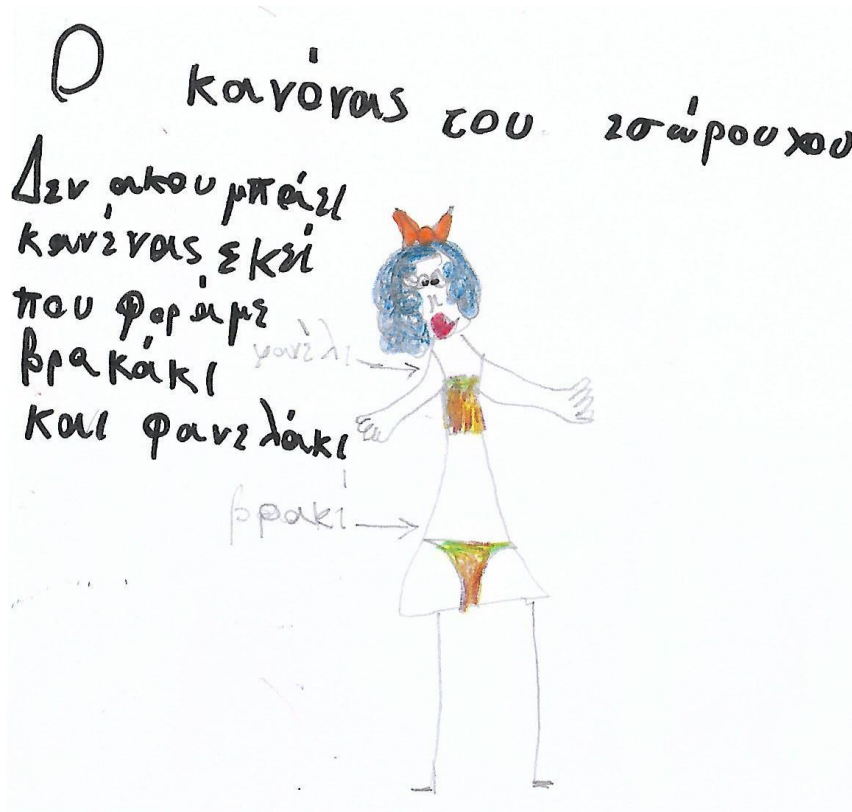 Ο κανόνας του εσώρουχου
Δεν ακουμπάει
κανένας εκεί
που φοράμε
βρακάκι
και φανελάκι
φανέλι
βρακί